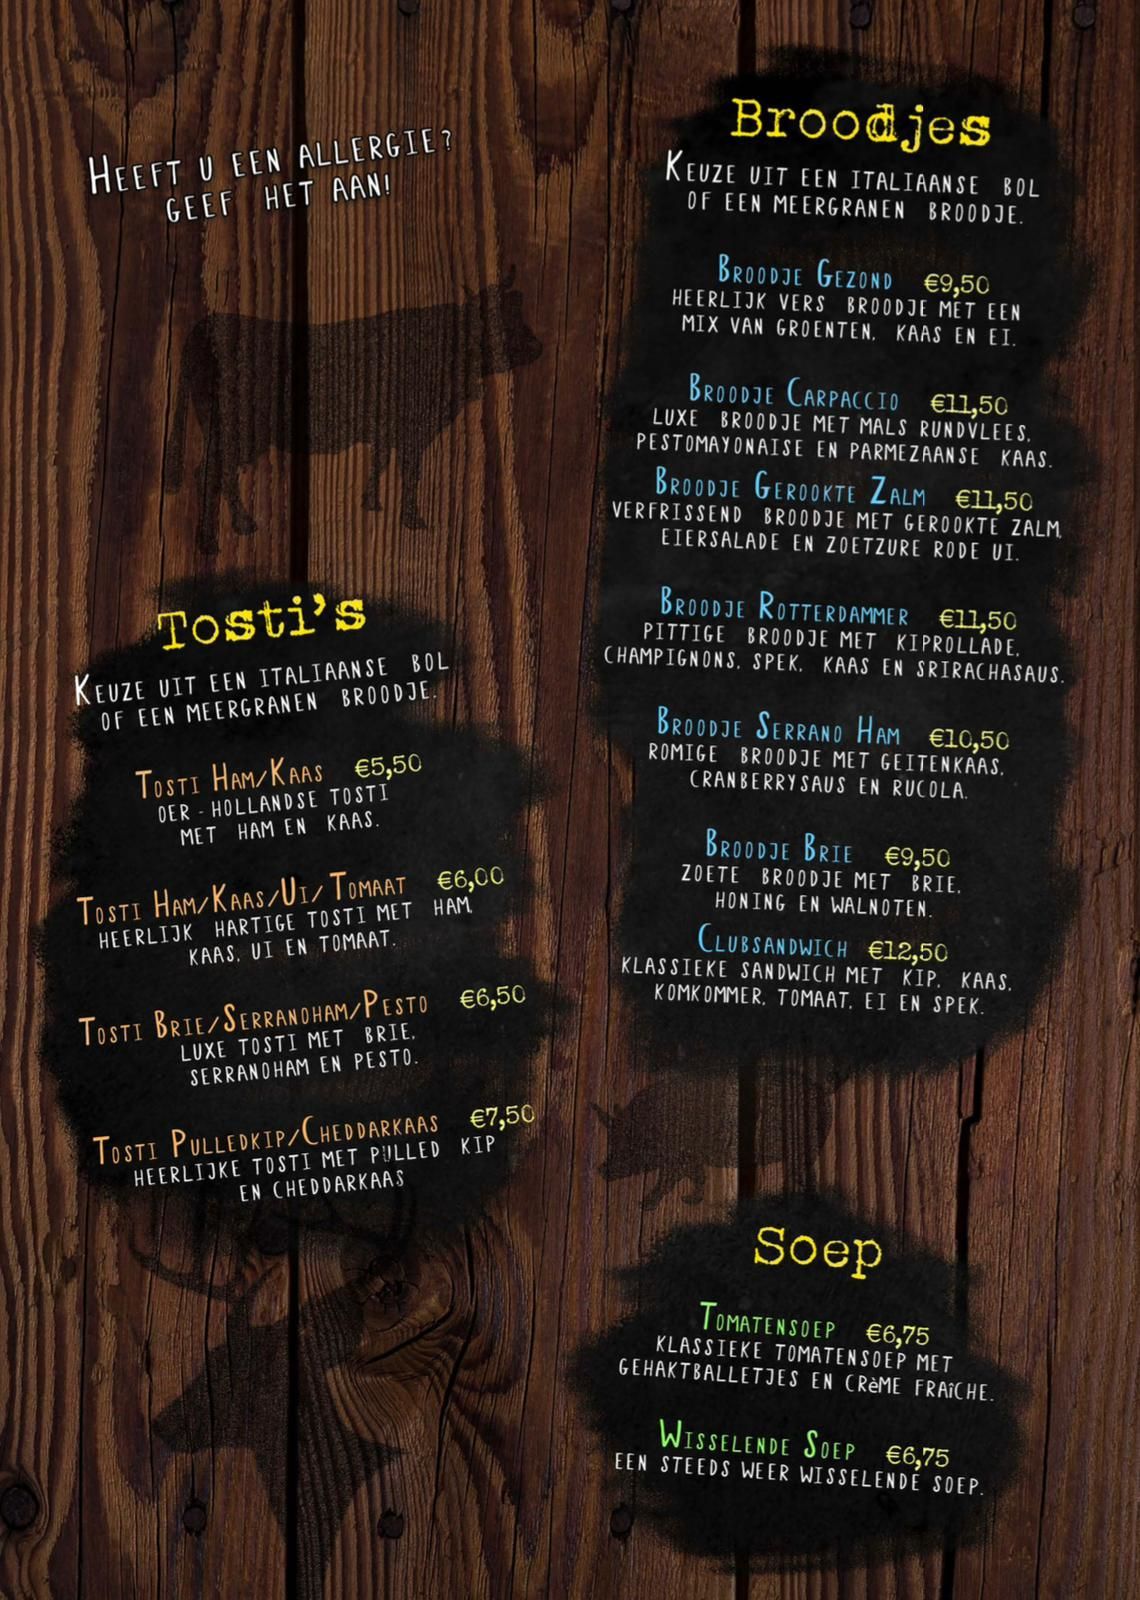 Heeft u een allergie?
Geef het aan!
Tosti's
Keuze uit een Italiaanse bol
of een meergranen broodje.
Tosti Ham/Kaas €5,50
Oer-Hollandse tosti
met ham en kaas.
Tosti Ham/Kaas/Ui/Tomaat €6,00
Heerlijk hartige tosti met ham,
kaas, ui en tomaat.
Tosti Brie/Serranoham/Pesto €6,50
Luxe tosti met brie,
serranoham en pesto.
Tosti Pulledkip/Cheddarkaas €7,50
Heerlijke tosti met pulled kip
en cheddarkaas
Broodjes
Keuze uit een Italiaanse bol
of een meergranen broodje.
Broodje Gezond €9,50
Heerlijk vers broodje met een
mix van groenten, kaas en ei.
Broodje Carpaccio €11,50
Luxe broodje met mals rundvlees,
pestomayonaise en Parmezaanse kaas.
Broodje Gerookte Zalm €11,50
Verfrissend broodje met gerookte zalm,
eiersalade en zoetzure rode ui.
Broodje Rotterdammer €11,50
Pittige broodje met kiprollade,
champignons, spek, kaas en srirachasaus.
Broodje Serrano Ham €10,50
Romige broodje met geitenkaas,
cranberrysaus en rucola.
Broodje Brie €9,50
Zoete broodje met brie,
honing en walnoten.
Clubsandwich €12,50
Klassieke sandwich met kip, kaas,
komkommer, tomaat, ei en spek.
Soep
Tomatensoep €6,75
Klassieke tomatensoep met
gehaktballetjes en crème fraîche.
Wisselende Soep €6,75
Een steeds weer wisselende soep.